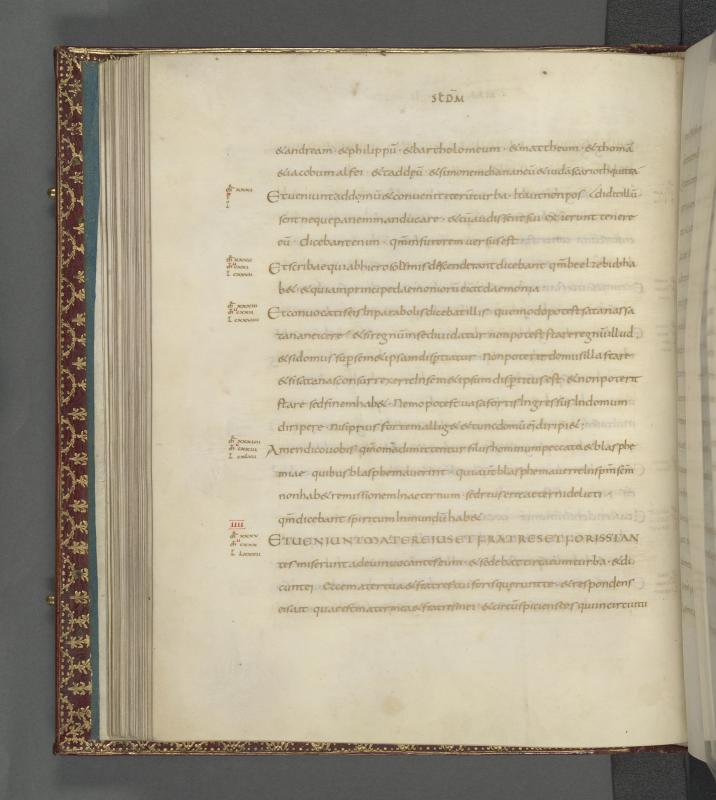 SCDM̄
&andream · &philippū · &bartholomeum · &mattheum · &thomā
&iacobum alfei · &taddeū · &simonem chananeū & iudā scarioth qui tra
Et ueniunt addomū & conuenit iterū turba · Ita ut non pos
sent neque panem manducare · & cū audissent sui exierunt tenere
eū · dicebant enim · qm̄ in furorem uersus est
Et scribae qui abhierosolimis descenderant dicebant qm̄ beelzebub ha
b& · & quia in principe daemoniorū eicit daemonia
Et conuocatis eis Inparabolis dicebat illis · quomodo potest satanas sa
tanan eicere · & si regnū inse diuidatur non potest stare regnū illud
& si domus sup sem&ipsam disp̄tiatur · Non poterit domus illa stare
& si satanas consurrexerit In sem&ipsum disp̄titus est · & non poterit
stare sed finem hab& · Nemo potest uasa fortis Ingressus In domum
diripere · nisi prius fortem allig& & tunc domū ej diripi& ·
Amen dico uobis qm̄ omnia dimittentur filiis hominum peccata & blasphe
miae quibus blasphemauerint · qui autē blasphemauerit In sp̄m sc̄m
non hab& remissionem In aeternum · sed reus erit aeterni delicti ·
qm̄ dicebant spiritum Inmundū hab&
IIII
ET UENIUNT MATER EIUS ET FRATRES ET FORIS STAN
tes miserunt ad eum uocantes eum · & sedebat circa eum turba · & di
cunt ei · Ecce mater tua & fratres tui foris querunt te · & respondens
eis ait · quae est mater mea & fratres mei · & circūspiciens eos qui in circuitu